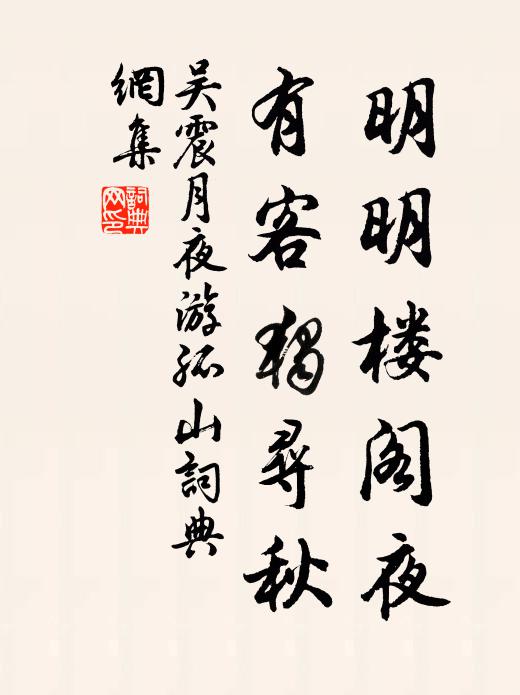 明明楼阁夜
有客獨尋秋
吴震月夜游孤山詞典
網集
詞典网印